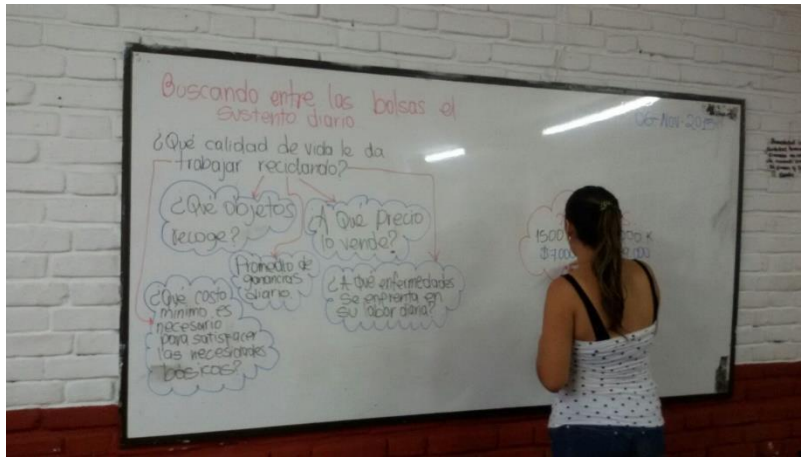 Buscando entre las bolsas el
sustento diario
06-Nov-2015
¿Qué calidad de vida le da
trabajar reciclando?
¿Qué objetos
recoge?
A Qué precio
lo vende?
Promedio de
ganancias
diario
¿A qué enfermedades
se enfrenta en
su labor diaria?
¿Qué costo
mínimo es
necesario
para satisfacer
las necesidades
básicas?
1500 K
$7000